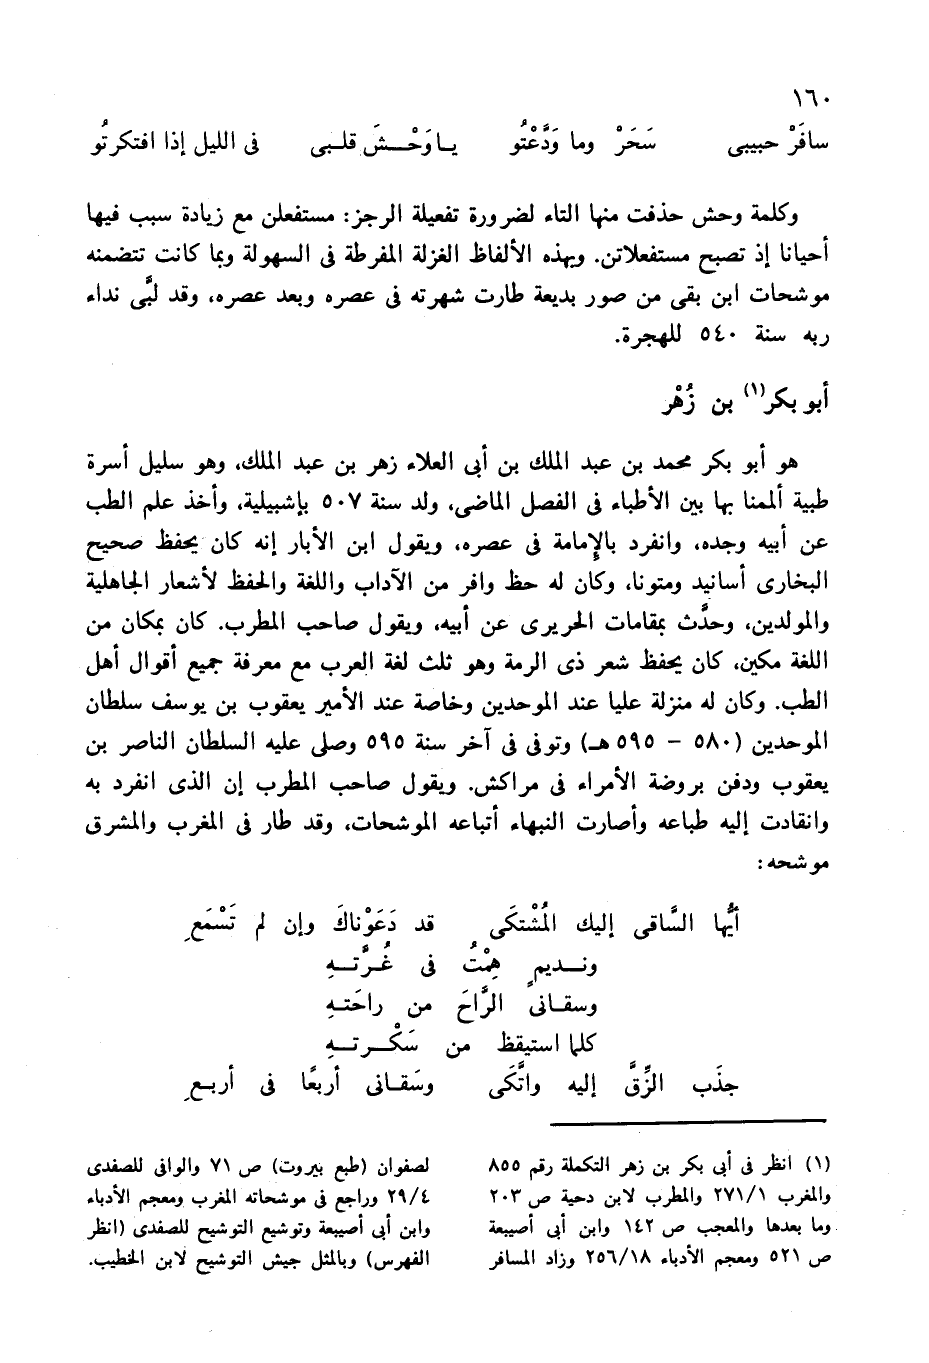 ١٦٠
سافَرْ حبيبى سَحَرْ وما وَدَّعْتُو يا وَحْـش قلـبى فى الليل إذا افتكرتُو
وكلمة وحش حذفت منها التاء لضرورة تفعيلة الرجز: مستفعلن مع زيادة سبب فيها
أحيانا إذ تصبح مستفعلاتن. وبهذه الألفاظ الغزلة المفرطة فى السهولة وبما كانت تتضمنه
موشحات ابن بقى من صور بديعة طارت شهرته فى عصره وبعد عصره، وقد لبَّى نداء
ربه سنة ٥٤٠ للهجرة.
أبو بكر(١) بن زُهْر
هو أبو بكر محمد بن عبد الملك بن أبى العلاء زهر بن عبد الملك، وهو سليل أسرة
طبية ألممنا بها بين الأطباء فى الفصل الماضى، ولد سنة ٥٠٧ بإشبيلية، وأخذ علم الطب
عن أبيه وجده، وانفرد بالإمامة فى عصره، ويقول ابن الأبار إنه كان يحفظ صحيح
البخارى أسانيد ومتونا، وكان له حظ وافر من الآداب واللغة والحفظ لأشعار الجاهلية
والمولدين، وحدَّث بمقامات الحريرى عن أبيه، ويقول صاحب المطرب. كان بمكان من
اللغة مكين، كان يحفظ شعر ذى الرمة وهو ثلث لغة العرب مع معرفة جميع أقوال أهل
الطب. وكان له منزلة عليا عند الموحدين وخاصة عند الأمير يعقوب بن يوسف سلطان
الموحدين (٥٨٠ - ٥٩٥ هـ) وتوفى فى آخر سنة ٥٩٥ وصلى عليه السلطان الناصر بن
يعقوب ودفن بروضة الأمراء فى مراكش. ويقول صاحب المطرب إن الذى انفرد به
وانقادت إليه طباعه وأصارت النبهاء أتباعه الموشحات، وقد طار فى المغرب والمشرق
موشحه:
أيُّها السَّاقى إليك المُشْتكَى قد دَعَوْناكَ وإن لم تَسْمَعِ
ونـديمٍ هِمْتُ فى غُـرَّتـهِ
وسقـانى الرَّاحَ من راحَتـهِ
كلما استيقظ من سَكْـرتـهِ
جذَب الزِّقَّ إليه واتَّكَى وسَقـانى أربعًا فى أربـعِ
(١) انظر فى أبى بكر بن زهر التكملة رقم ٨٥٥
والمغرب ٢٧١/١ والمطرب لابن دحية ص ٢٠٣
وما بعدها والمعجب ص ١٤٢ وابن أبى أصيبعة
ص ٥٢١ ومعجم الأدباء ٢٥٦/١٨ وزاد المسافر
لصفوان (طبع بيروت) ص ٧١ والوافى للصفدى
٢٩/٤ وراجع فى موشحاته المغرب ومعجم الأدباء
وابن أبى أصيبعة وتوشيع التوشيح للصفدى (انظر
الفهرس) وبالمثل جيش التوشيح لابن الخطيب.